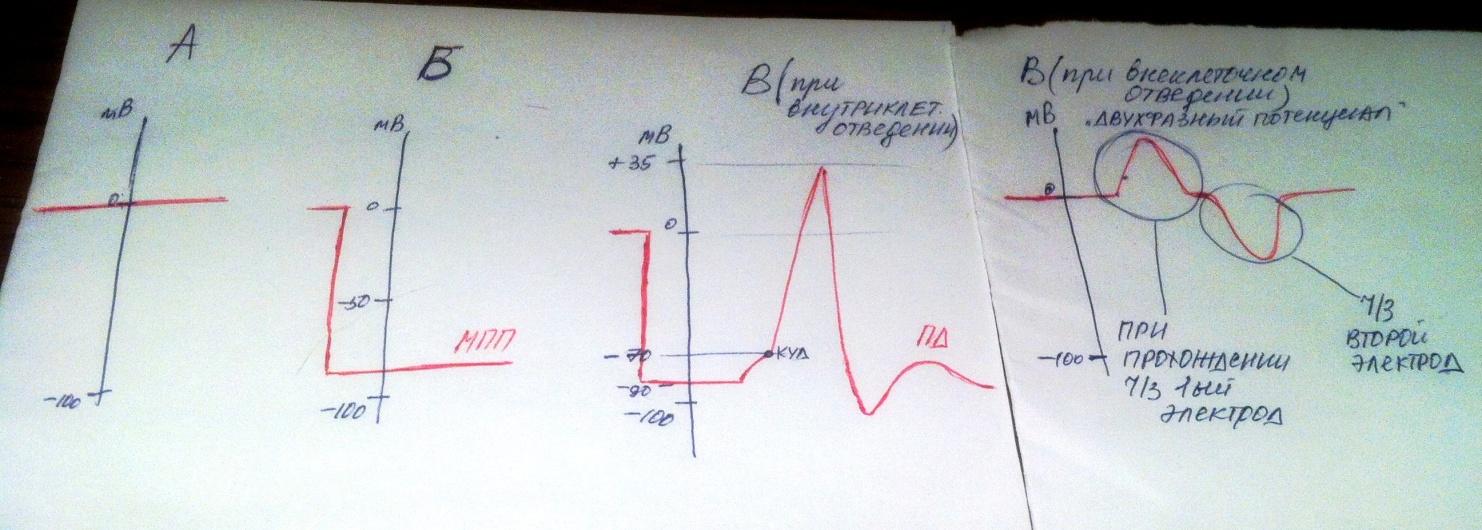 А
мВ
0
-100
Б
мВ
0
-50
МПП
-100
В(при
внутриклет.
отведении)
мВ
+35
0
-70
КУД
ПД
-90
-100
В(при внеклеточном
отведении)
мВ „двухфазный потенциал"
0
-100
ПРИ
ПРОХОЖДЕНИИ
Ч/З 1ый
электрод
Ч/З
ВТОРОЙ
ЭЛЕКТРОД